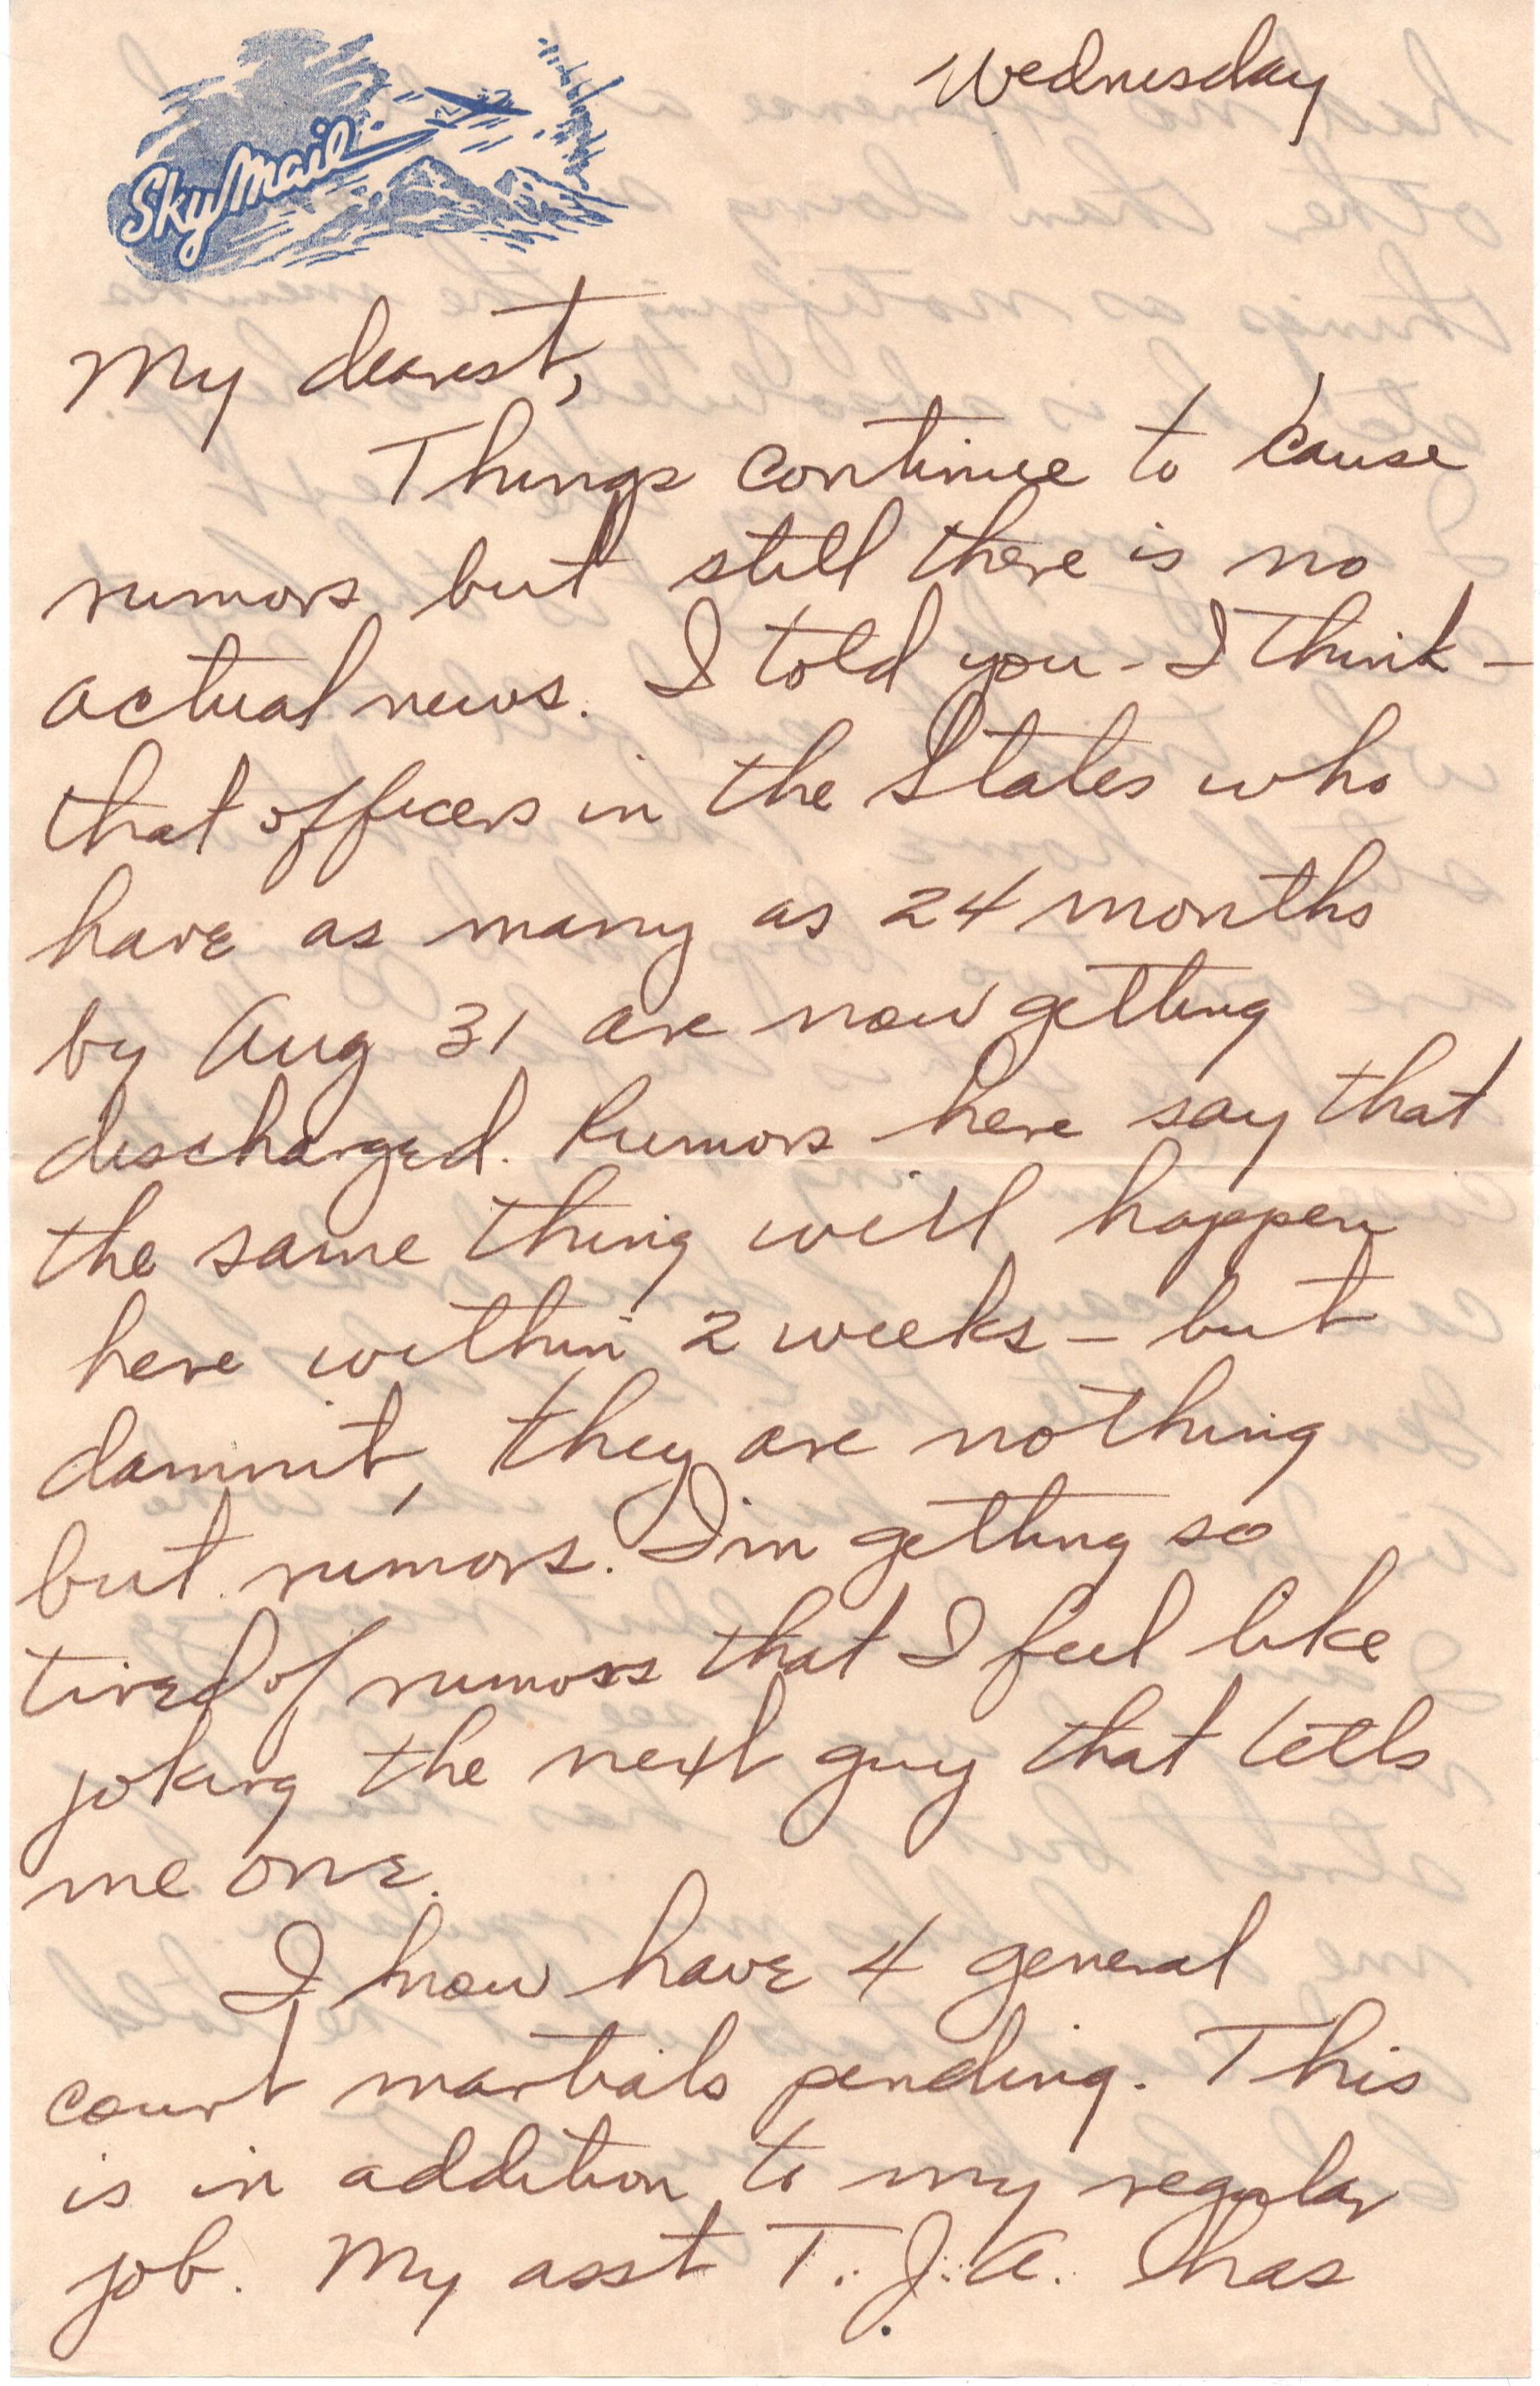 Wednesday
Sky Mail
My dearest,
Things continue to cause
rumors but still there is no
actual news. I told you - I think -
that officers in the States who
have as many as 24 months
by Aug 31 are now getting
discharged. Rumors here say that
the same thing will happen
here within 2 weeks - but
damnit, they are nothing
but rumors. I'm getting so
tired of rumors that I feel like
joking the next guy that tells
me one.
I now have 4 general
court martials pending. This
is in addition to my regular
job. My asst T.J.A. has